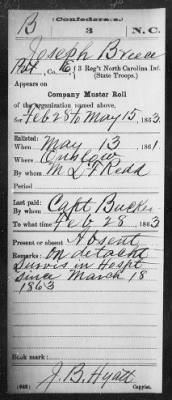 (Confederate.)
B 3 N.C.
Joseph Breece
Pvt, Co. 3 Reg't North Carolina Inf.
(State Troops.)
Appears on
Company Muster Roll
of the organization named above,
for Feb 28 to May 15, 1863
Enlisted:
When May 13 1861
Where Onslow
By whom M L F Redd
Period
Last paid:
By whom Capt
To what time Feb 28, 1863
Present or absent Absent
Remarks: On detacht
Survis in Hospt
since March 18
1863
Book mark:
J. B. Hyatt
(642) Copyist.